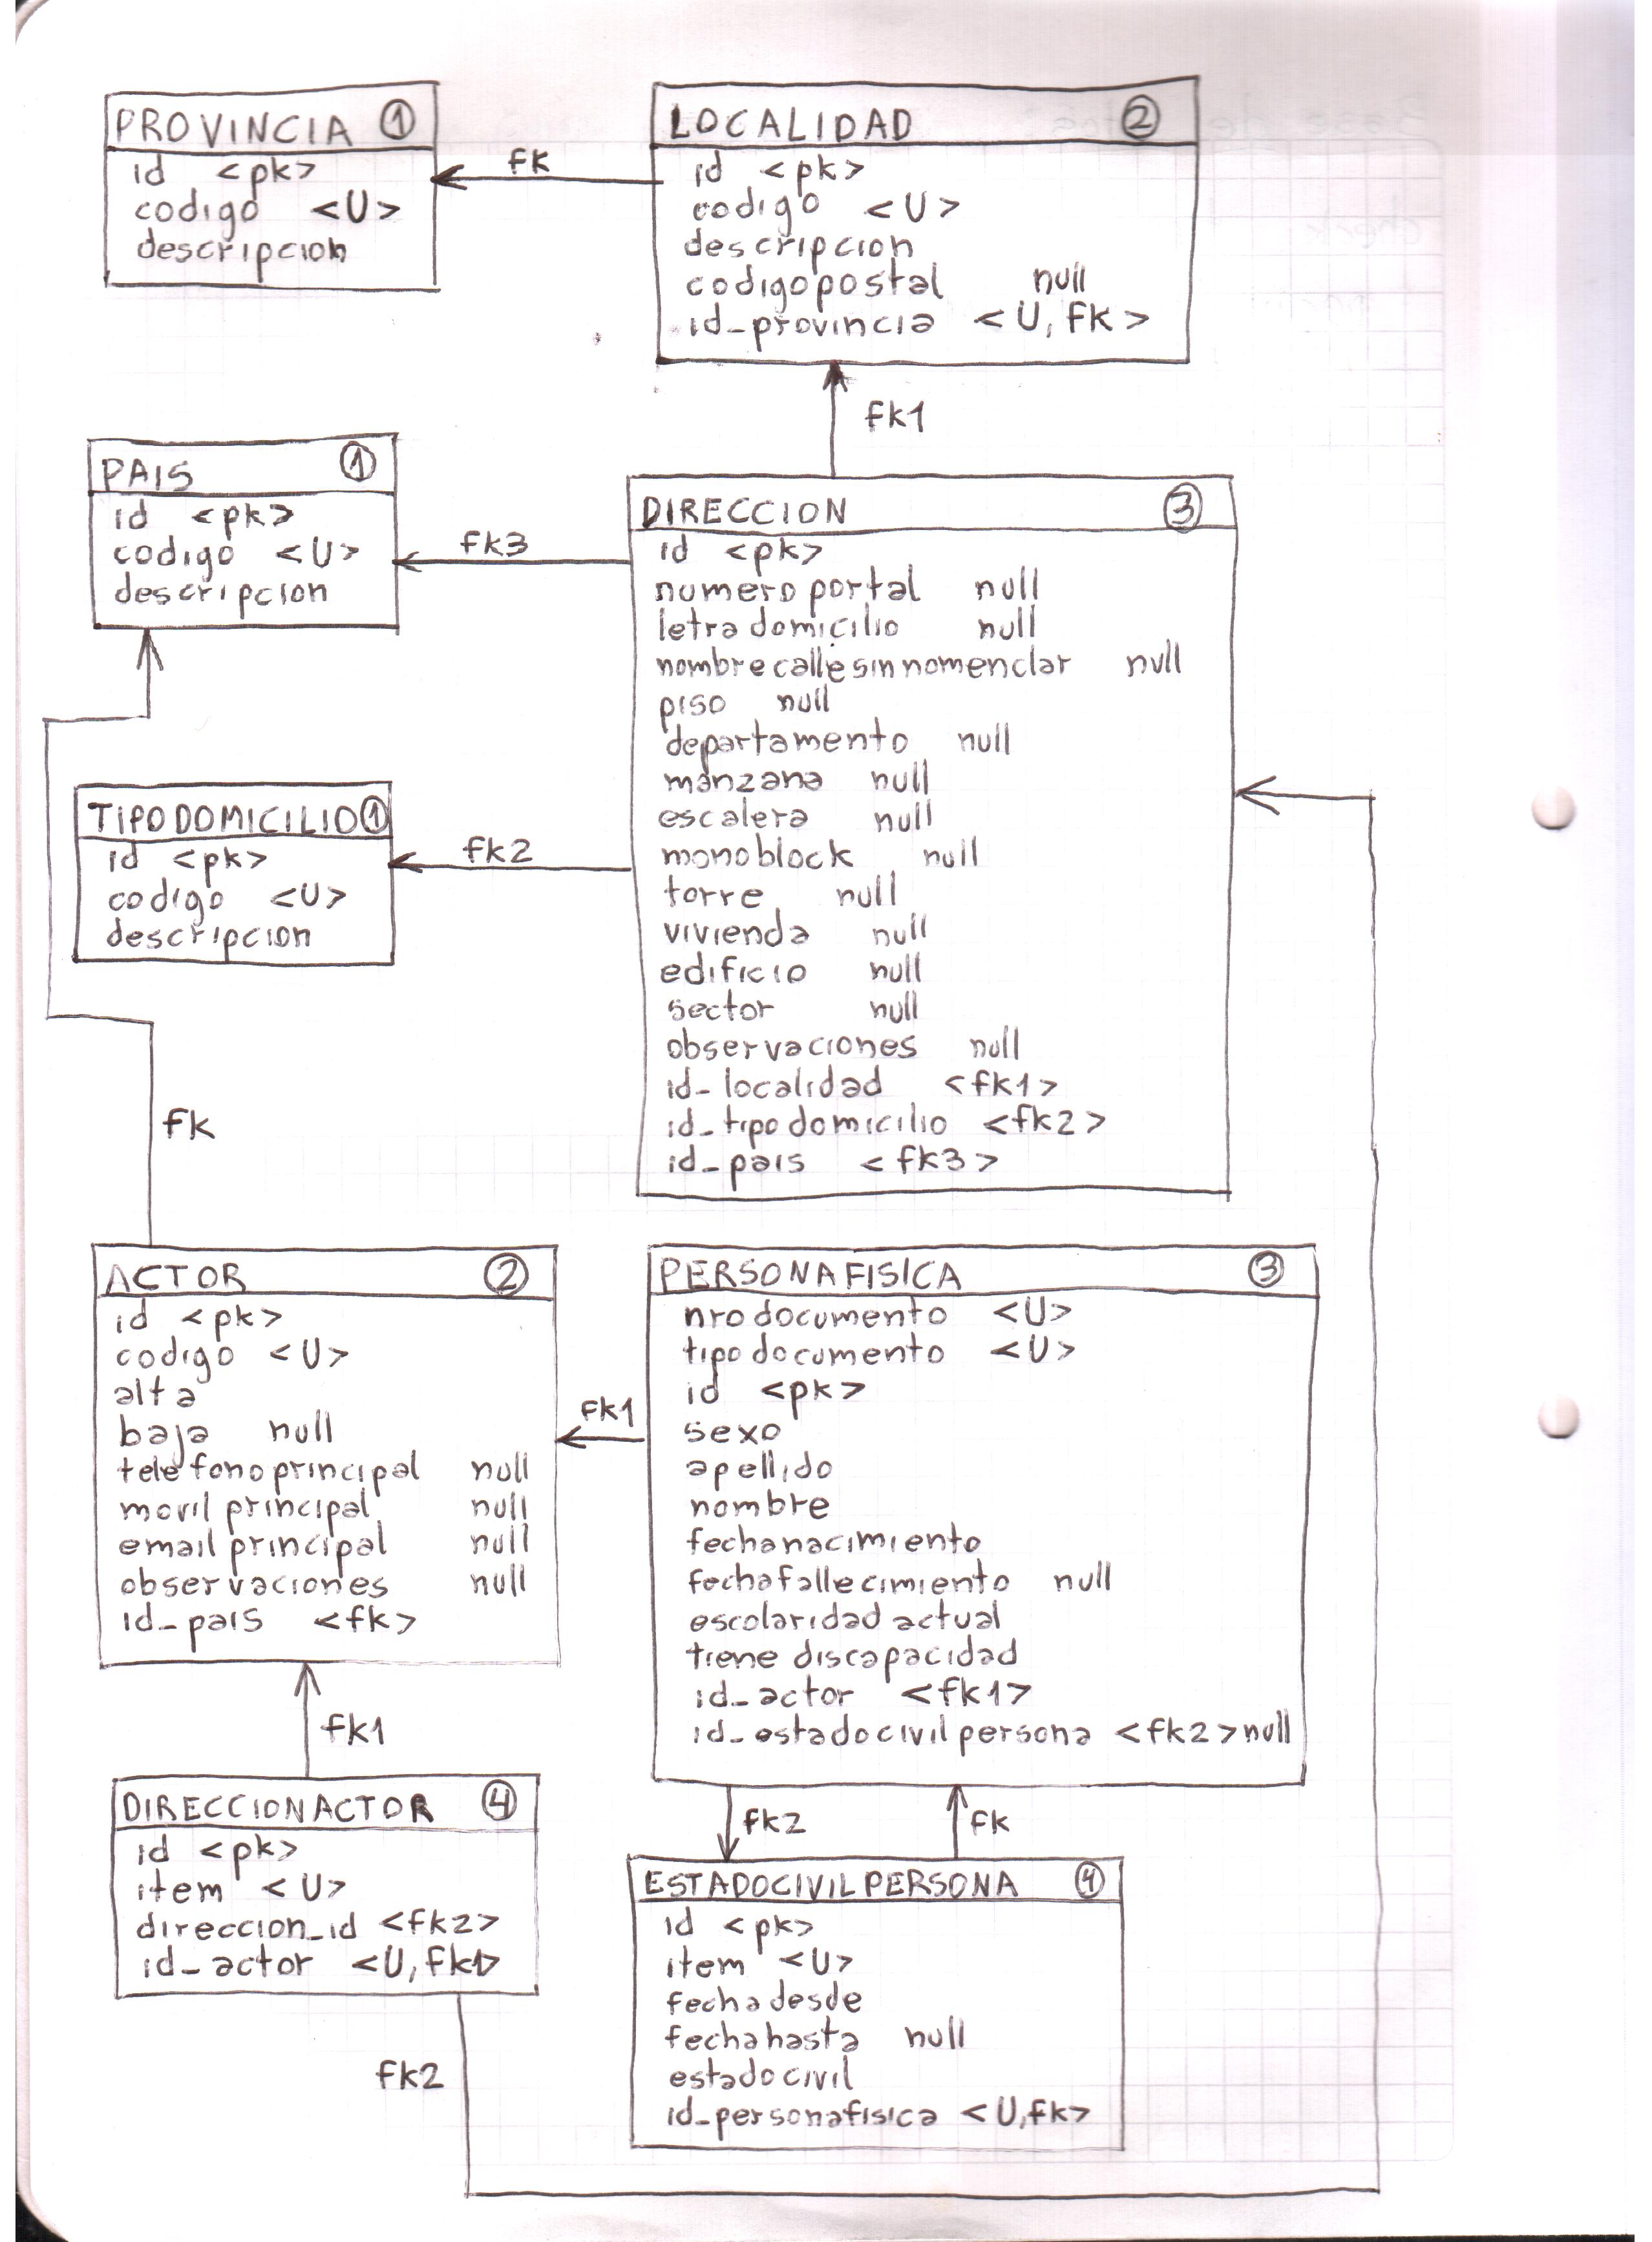 PROVINCIA 1
id <pk>
codigo <U>
descripcion
fk
LOCALIDAD 2
id <pk>
codigo <U>
descripcion
codigopostal null
id_provincia <U, fk>
fk1
PAIS 1
id <pk>
codigo <U>
descripcion
fk3
DIRECCION 3
id <pk>
numeroportal null
letradomicilio null
nombrecallesinnomenclar null
piso null
departamento null
manzana null
escalera null
monoblock null
torre null
vivienda null
edificio null
sector null
observaciones null
id_localidad <fk1>
id_tipodomicilio <fk2>
id_pais <fk3>
TIPODOMICILIO 1
id <pk>
codigo <U>
descripcion
fk2
fk
ACTOR 2
id <pk>
codigo <U>
alta
baja null
telefonoprincipal null
movilprincipal null
emailprincipal null
observaciones null
id_pais <fk>
fk1
PERSONAFISICA 3
nrodocumento <U>
tipodocumento <U>
id <pk>
sexo
apellido
nombre
fechanacimiento
fechafallecimiento null
escolaridadactual
tienediscapacidad
id_actor <fk1>
id_estadocivilpersona <fk2> null
fk1
DIRECCIONACTOR 4
id <pk>
item <U>
direccion_id <fk2>
id_actor <U, fk1>
fk2
fk2
fk
ESTADOCIVILPERSONA 4
id <pk>
item <U>
fechadesde
fechahasta null
estadocivil
id_personafisica <U, fk>